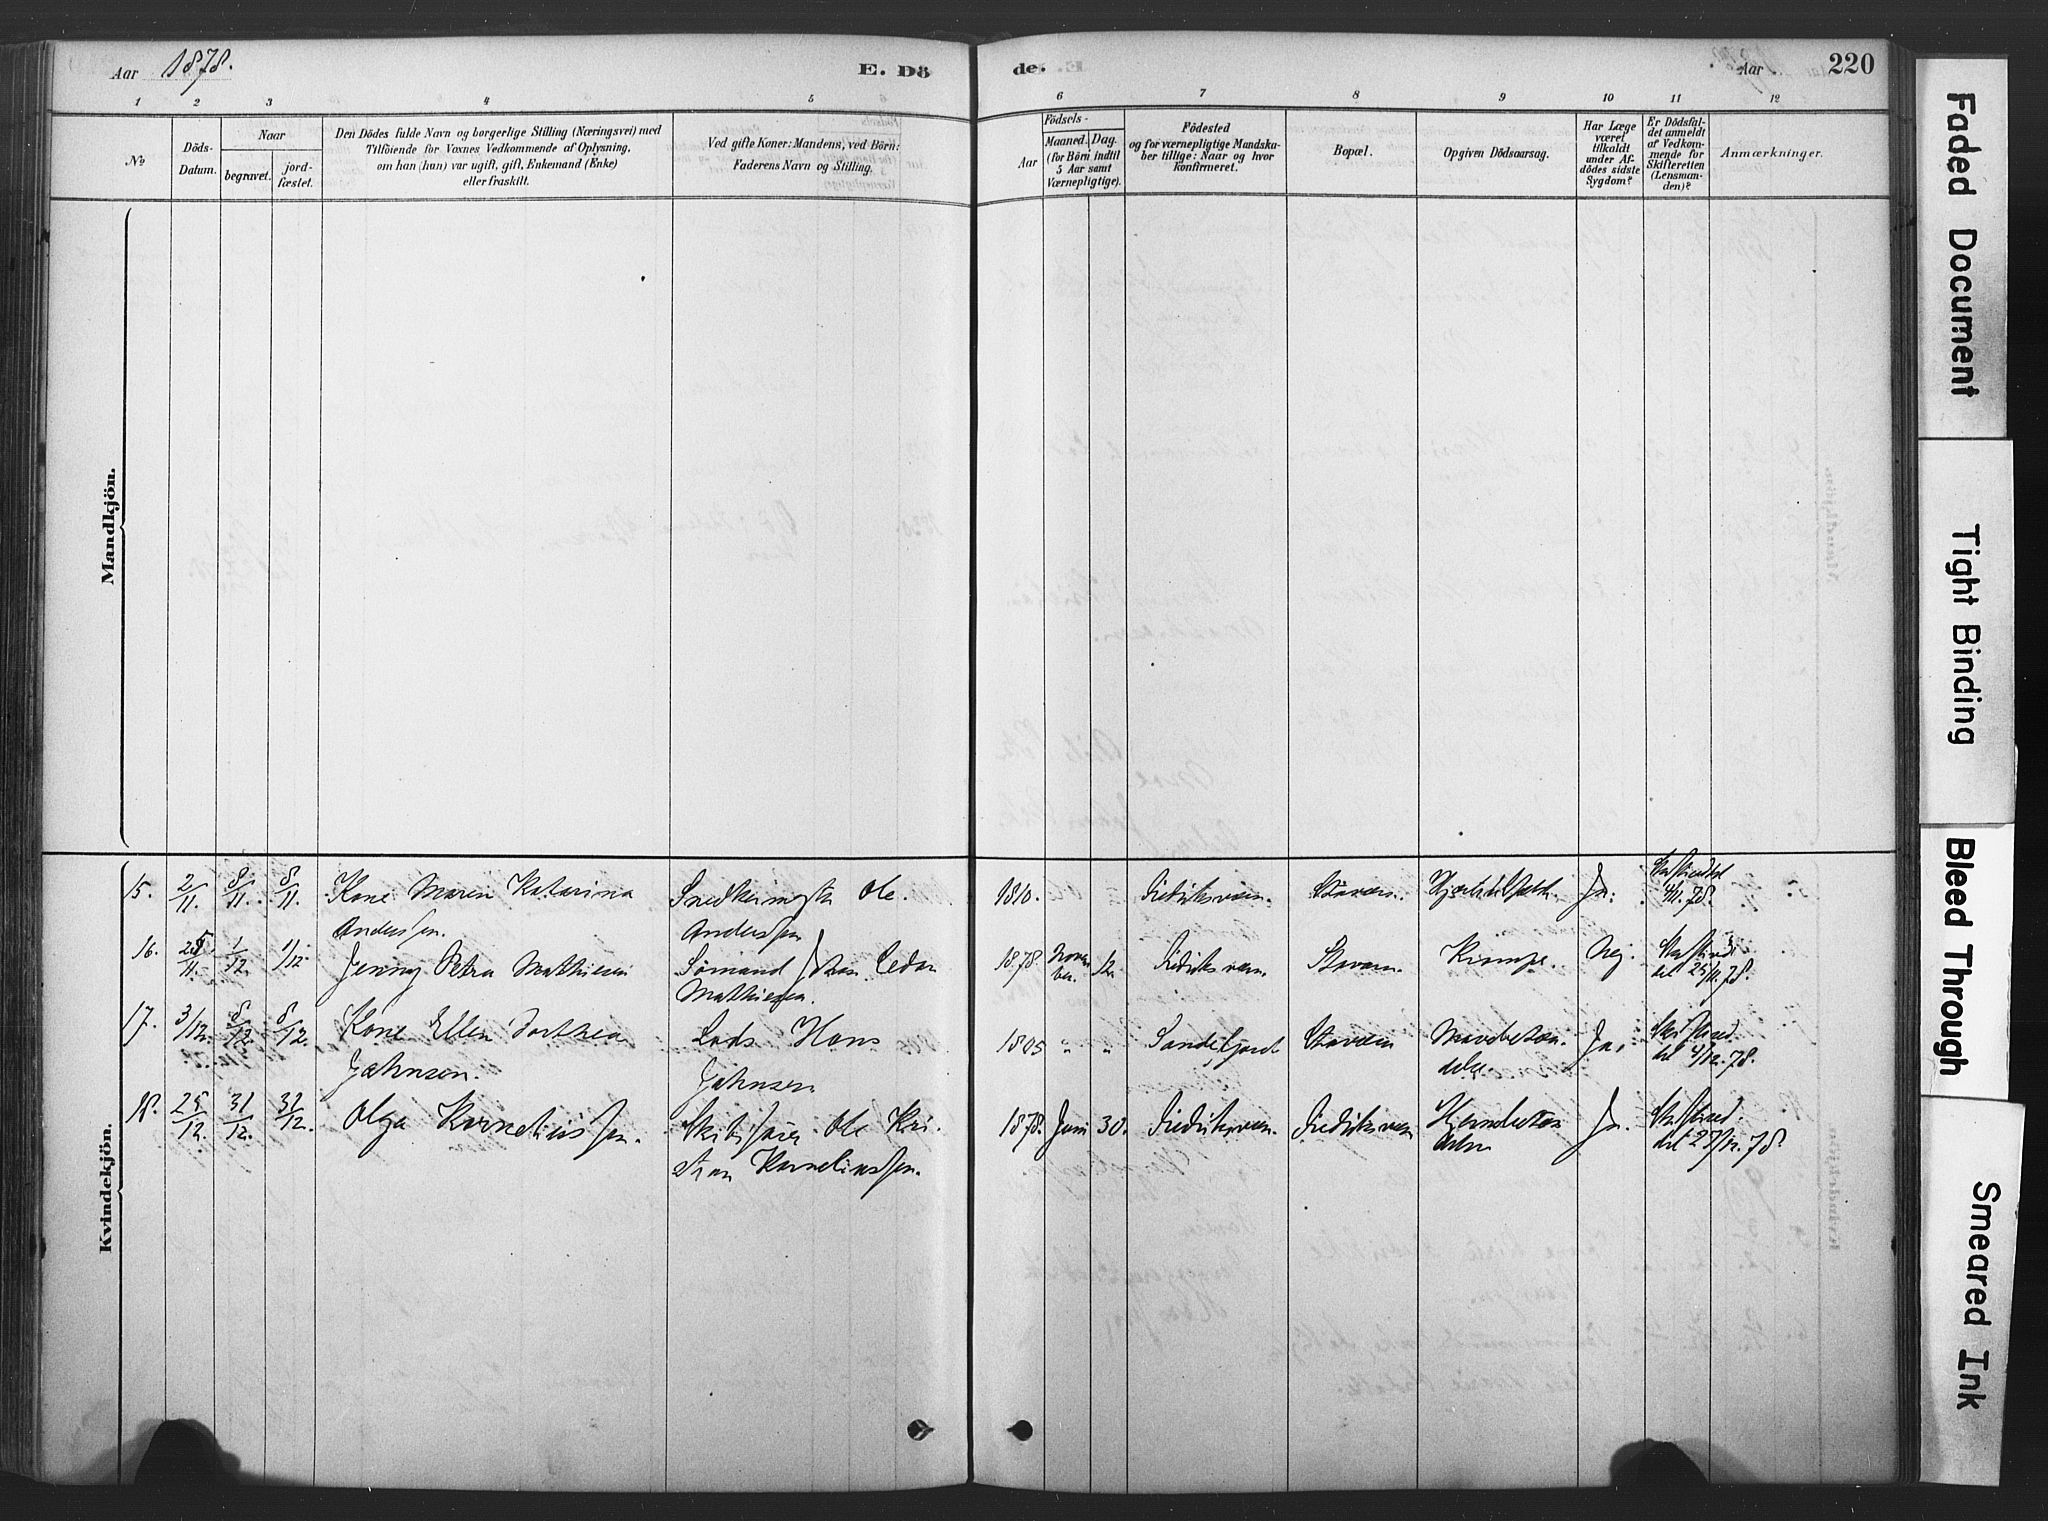 Aar 1878.
E. Dö
de.
Aar
220
1 2 3 4 5 6 7 8 9 10 11 12
No
Döds-
Datum.
Naar
begravet.
jord-
fæstet.
Den Dödes fulde Navn og borgerlige Stilling (Næringsvei) med
Tilföiende for Voxnes Vedkommende af Oplysning,
om han (hun) var ugift, gift, Enkemand (Enke)
eller fraskilt.
Ved gifte Koner: Mandens, ved Börn:
Faderens Navn og Stilling.
Födsels-
Aar
Maaned. Dag.
(for Börn indtil
5 Aar samt
Værnepligtige).
Födested
og for værnepligtige Mandsku-
ber tillige: Naar og hvor
konfirmeret.
Bopæl.
Opgiven Dödsaarsag.
Har Læge
været
tilkaldt
under Af-
dödes sidste
Sygdom?
Er Dödsfal-
det anmeldt
af Vedkom-
mende for
Skifteretten
(Lensman-
den)?
Anmærkninger.
Mandkjön.
Kvindekjön.
15. 2/11. 8/11. 8/11. Kone Maren Katarina Ole 1810. Fredriksværn. Stavern. Ja.
Anderssen. Anderssen 4/11. 78.
16. 1/12 1/12. Jenny Petra Mathiesen Sömand 1878. Novem Fredriksværn. Stavern. Krampe. Nej.
Mathiesen. ber. 12. 25/11. 78.
17. 3/12. 8/12. 8/12. Kone Ellen Dorthea Lods Hans 1805 " " Sandefjord Stavern Ja.
Johnsen. Johnsen 4/12. 78.
18. 25/12. 31/12. 31/12. Olga Korneliussen. Ole Kri- 1878. Juni 30. Fredriksværn. Fredriksværn Ja.
stian Korneliussen. 27/12. 78.
Faded Document
Tight Binding
Bleed Through
Smeared Ink